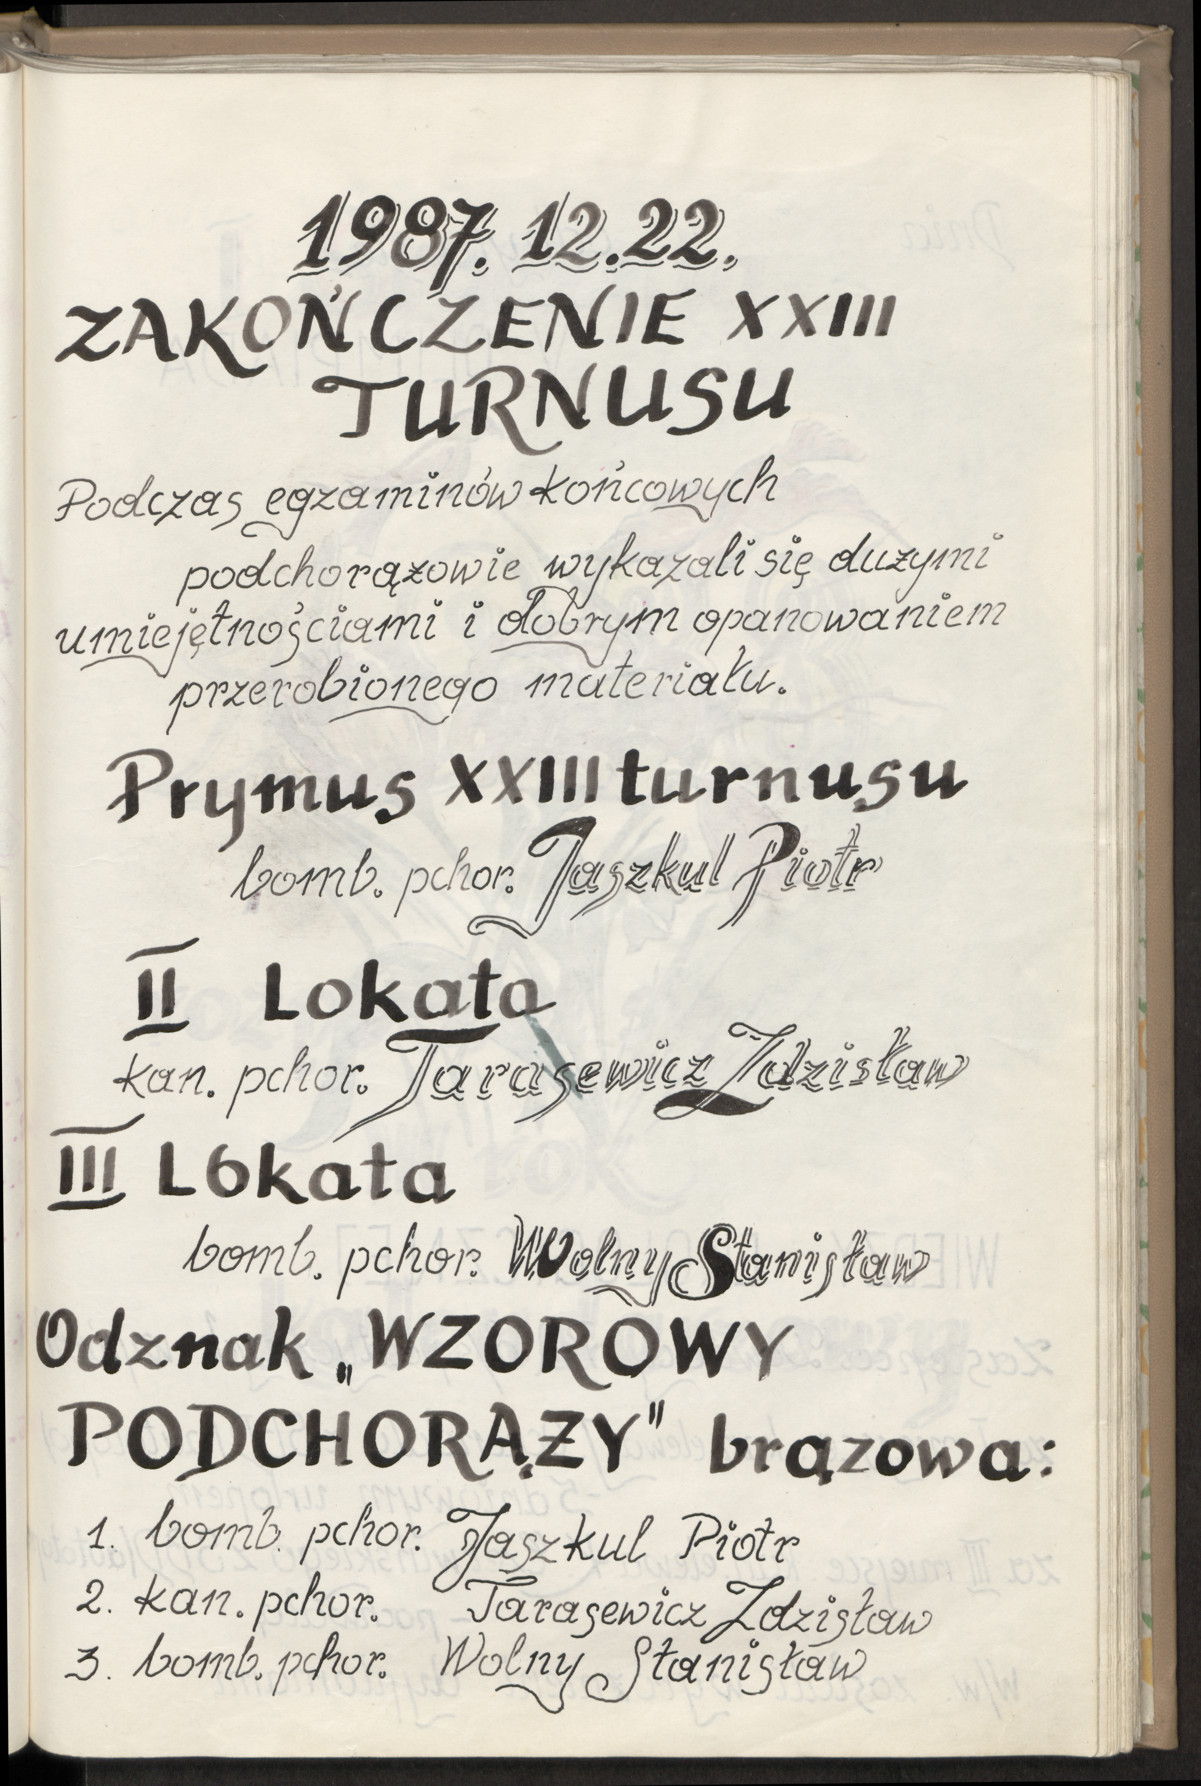 1987. 12.22.
ZAKOŃCZENIE XXIII
TURNUSU
Podczas egzaminów końcowych
podchorążowie wykazali się dużymi
umiejętnościami i dobrym opanowaniem
przerobionego materiału.
Prymus XXIII turnusu
bomb. pchor. Jaszkul Piotr
II Lokata
kan. pchor. Tarasewicz Zdzisław
III Lokata
bomb. pchor. Wolny Stanisław
Odznak „WZOROWY
PODCHORĄŻY" brązowa:
1. bomb. pchor. Jaszkul Piotr
2. kan. pchor. Tarasewicz Zdzisław
3. bomb. pchor. Wolny Stanisław